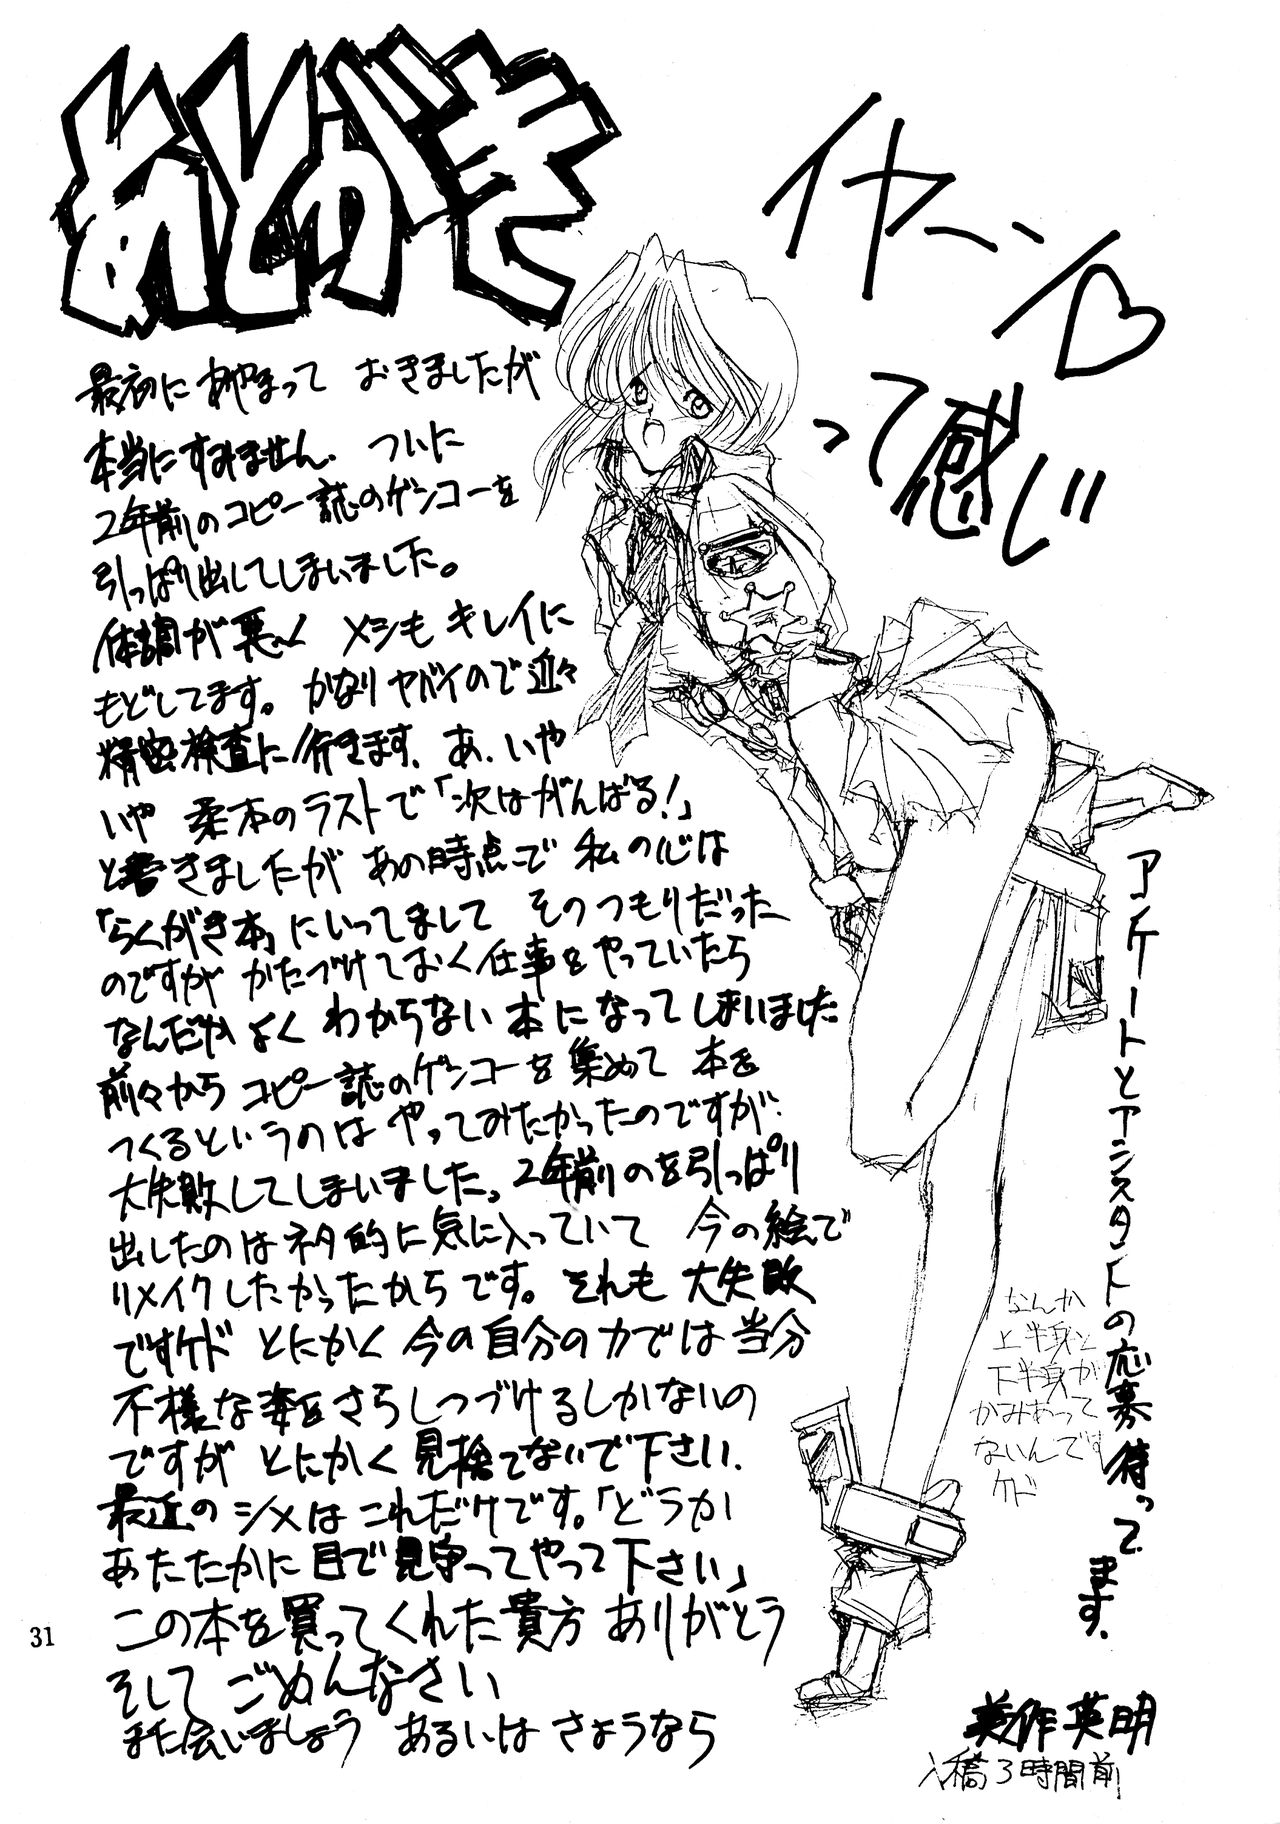 あとがき
イヤーン♡
って感じ
最初にあやまって おきましたが
本当にすみません. ついに
2年前のコピー誌のゲンコーを
引っぱり出してしまいました。
体調が悪く メシも キレイに
もどしてます。かなりヤバイので近々
精密検査に行きます. あ、いや
いや 柔本のラストで「次はがんばる!」
と書きましたが あの時点で 私の心は
「らくがき本」にいってまして そのつもりだった
のですが かたづけておく仕事をやっていたら
なんだかよく わからない本になってしまいました
前々から コピー誌のゲンコーを集めて 本を
つくるというのは やってみたかったのですが.
大失敗してしまいました。2年前のを引っぱり
出したのはネタ的に気に入っていて 今の絵で
リメイクしたかったからです。それも 大失敗
ですケド とにかく 今の自分の力では当分
不様な姿をさらしつづけるしかないの
ですが とにかく見捨てないで下さい.
最近のシメはこれだけです。「どうか
あたたかに目で見守ってやって下さい」
この本を買ってくれた貴方 ありがとう
そして ごめんなさい
また会いましょう あるいは さようなら
アンケートとアシスタントの応募待ってます.
なんか
上半身と
下半身が
かみあって
ないんです
ケド
美作英明
入稿3時間前
31